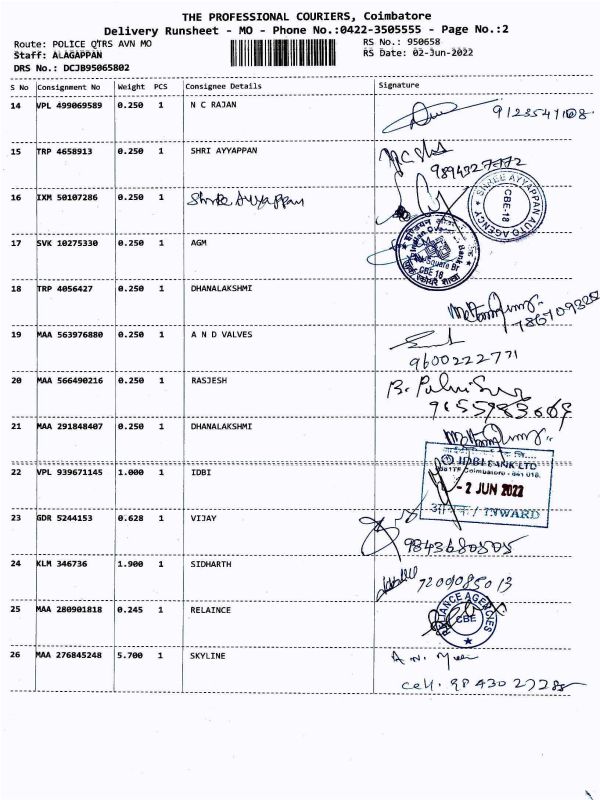 THE PROFESSIONAL COURIERS, Coimbatore
Delivery Runsheet - MO - Phone No.:0422-3505555 - Page No.:2
Route: POLICE QTRS AVN MO
RS No.: 950658
Staff: ALAGAPPAN
RS Date: 02-Jun-2022
DRS No.: DCJB95065802
S No Consignment No Weight PCS Consignee Details Signature
14 VPL 499069589 0.250 1 N C RAJAN
15 TRP 4658913 0.250 1 SHRI AYYAPPAN
16 IXM 50107286 0.250 1 Shree Ayyappan
SHREE AYYAPPAN AUTO AGENCY
CBE-18
17 SVK 10275330 0.250 1 AGM
CBE 18
18 TRP 4056427 0.250 1 DHANALAKSHMI
19 MAA 563976880 0.250 1 A N D VALVES
9600222771
20 MAA 566490216 0.250 1 RASJESH
21 MAA 291848407 0.250 1 DHANALAKSHMI
IDBI BANK LTD
Coimbatore - 641 018.
- 2 JUN 2022
/ INWARD
22 VPL 939671145 1.000 1 IDBI
23 GDR 5244153 0.628 1 VIJAY
9843680505
24 KLM 346736 1.900 1 SIDHARTH
7209085013
25 MAA 280901818 0.245 1 RELAINCE
RELIANCE AGENCIES
CBE
26 MAA 276845248 5.700 1 SKYLINE
cell.